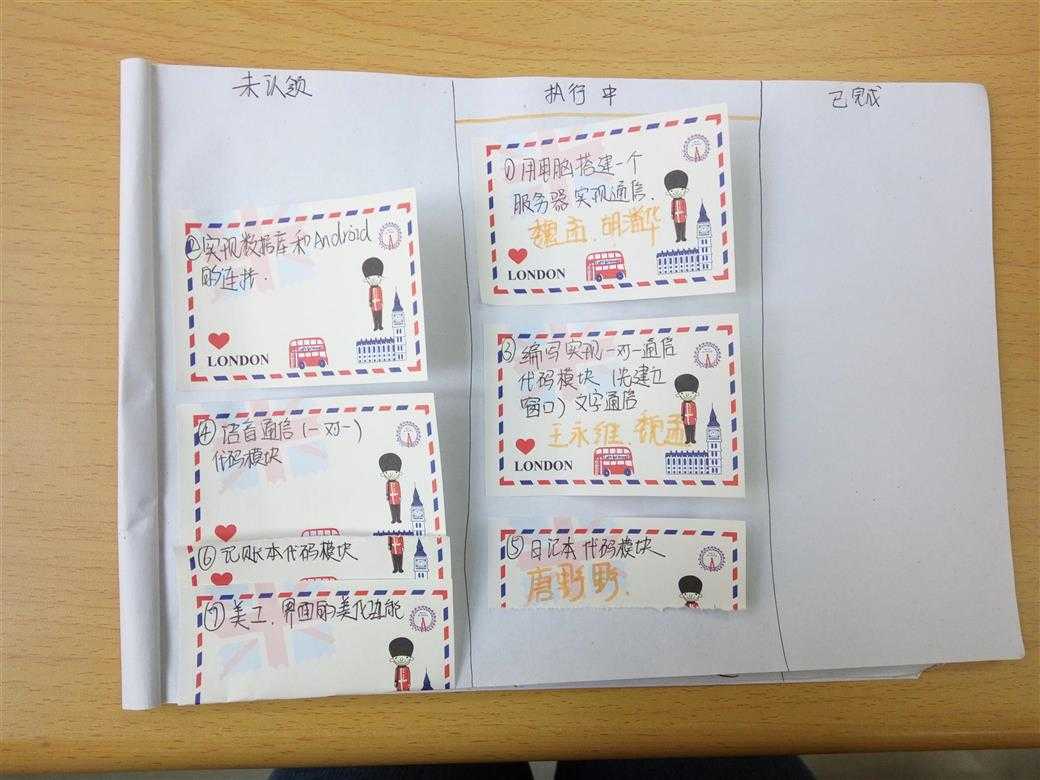 未认领
②实现数据库和Android
的连接.
LONDON
④语音通信(一对一)
代码模块
⑥记账本代码模块
⑦美工.界面的美化功能
执行中
①用电脑搭建一个
服务器实现通信.
魏孟.胡潇华
LONDON
③编写实现一对一通信
代码模块(先建立
窗口)文字通信
王永维.魏孟
LONDON
⑤日记本代码模块
唐野野.
已完成